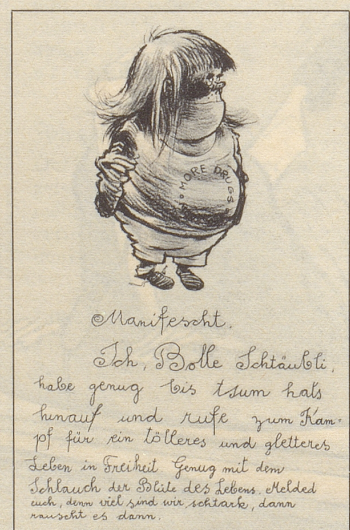 MORE DRUGS
Manifescht.
Ich, Bolle Schtäubli,
habe genug bis tsum hals
hinauf und rufe zum Kam-
pf für ein tölleres und gletteres
Leben in Freiheit Genug mit dem
Schlauch der Blüte des Lebens. Melded
euch, denn viel sind wir schtark, dann
rauscht es dann.